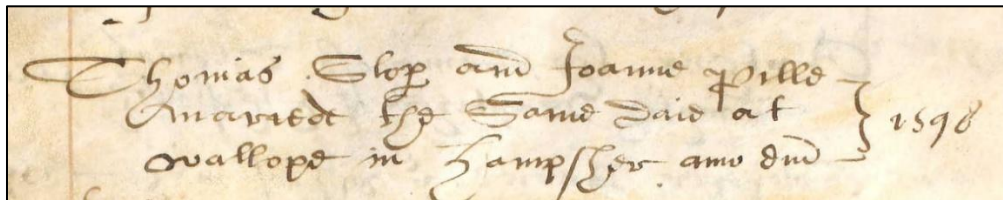 Thomas Slop and Joanne Pille
Maried the Same daie at
wallope in Hampsher ano dm̄ 1598